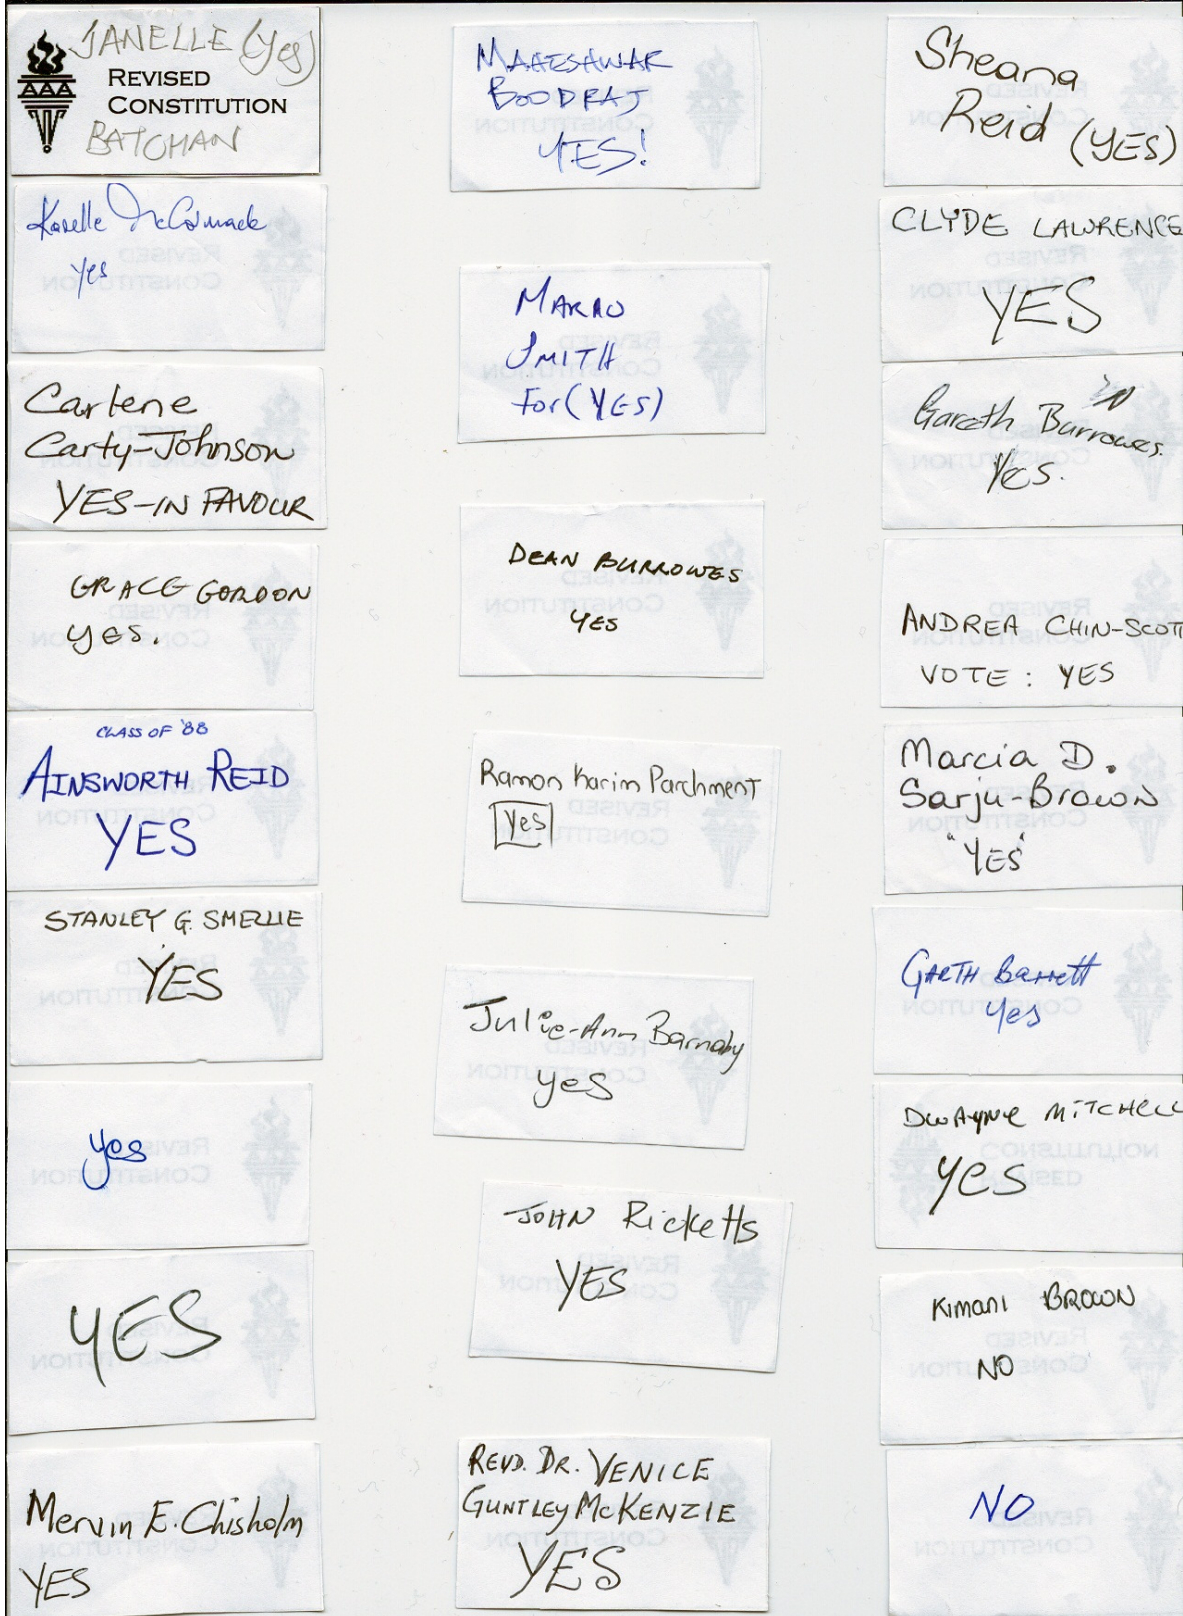 JANELLE (Yes)
REVISED
CONSTITUTION
BATCHAN
Karelle McCormack
Yes
Carlene
Carty-Johnson
YES-IN FAVOUR
GRACE GORDON
yes.
CLASS OF '88
AINSWORTH REID
YES
STANLEY G. SMELLIE
YES
yes
YES
Mervin E. Chisholm
YES
MAHESHWAR
BOODRAJ
YES!
SMITH
For (YES)
DEAN BURROWES
YES
Ramon Karim Parchment
Yes
Julie-Ann Barnaby
yes
JOHN Ricketts
YES
REVD. DR. VENICE
GUNTLEY McKENZIE
YES
Sheana
Reid (YES)
CLYDE LAWRENCE
YES
Gareth Burrowes.
Yes.
ANDREA CHIN-SCOTT
VOTE: YES
Marcia D.
Sarju-Brown
"YES"
GARTH Barrett
Yes
DWAYNE MITCHELL
YES
KIMANI BROWN
NO
NO